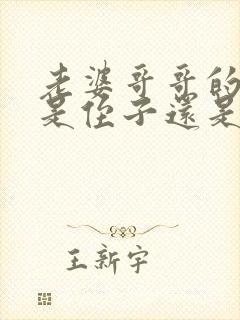 老婆哥哥的
是侄子還是
王新宇